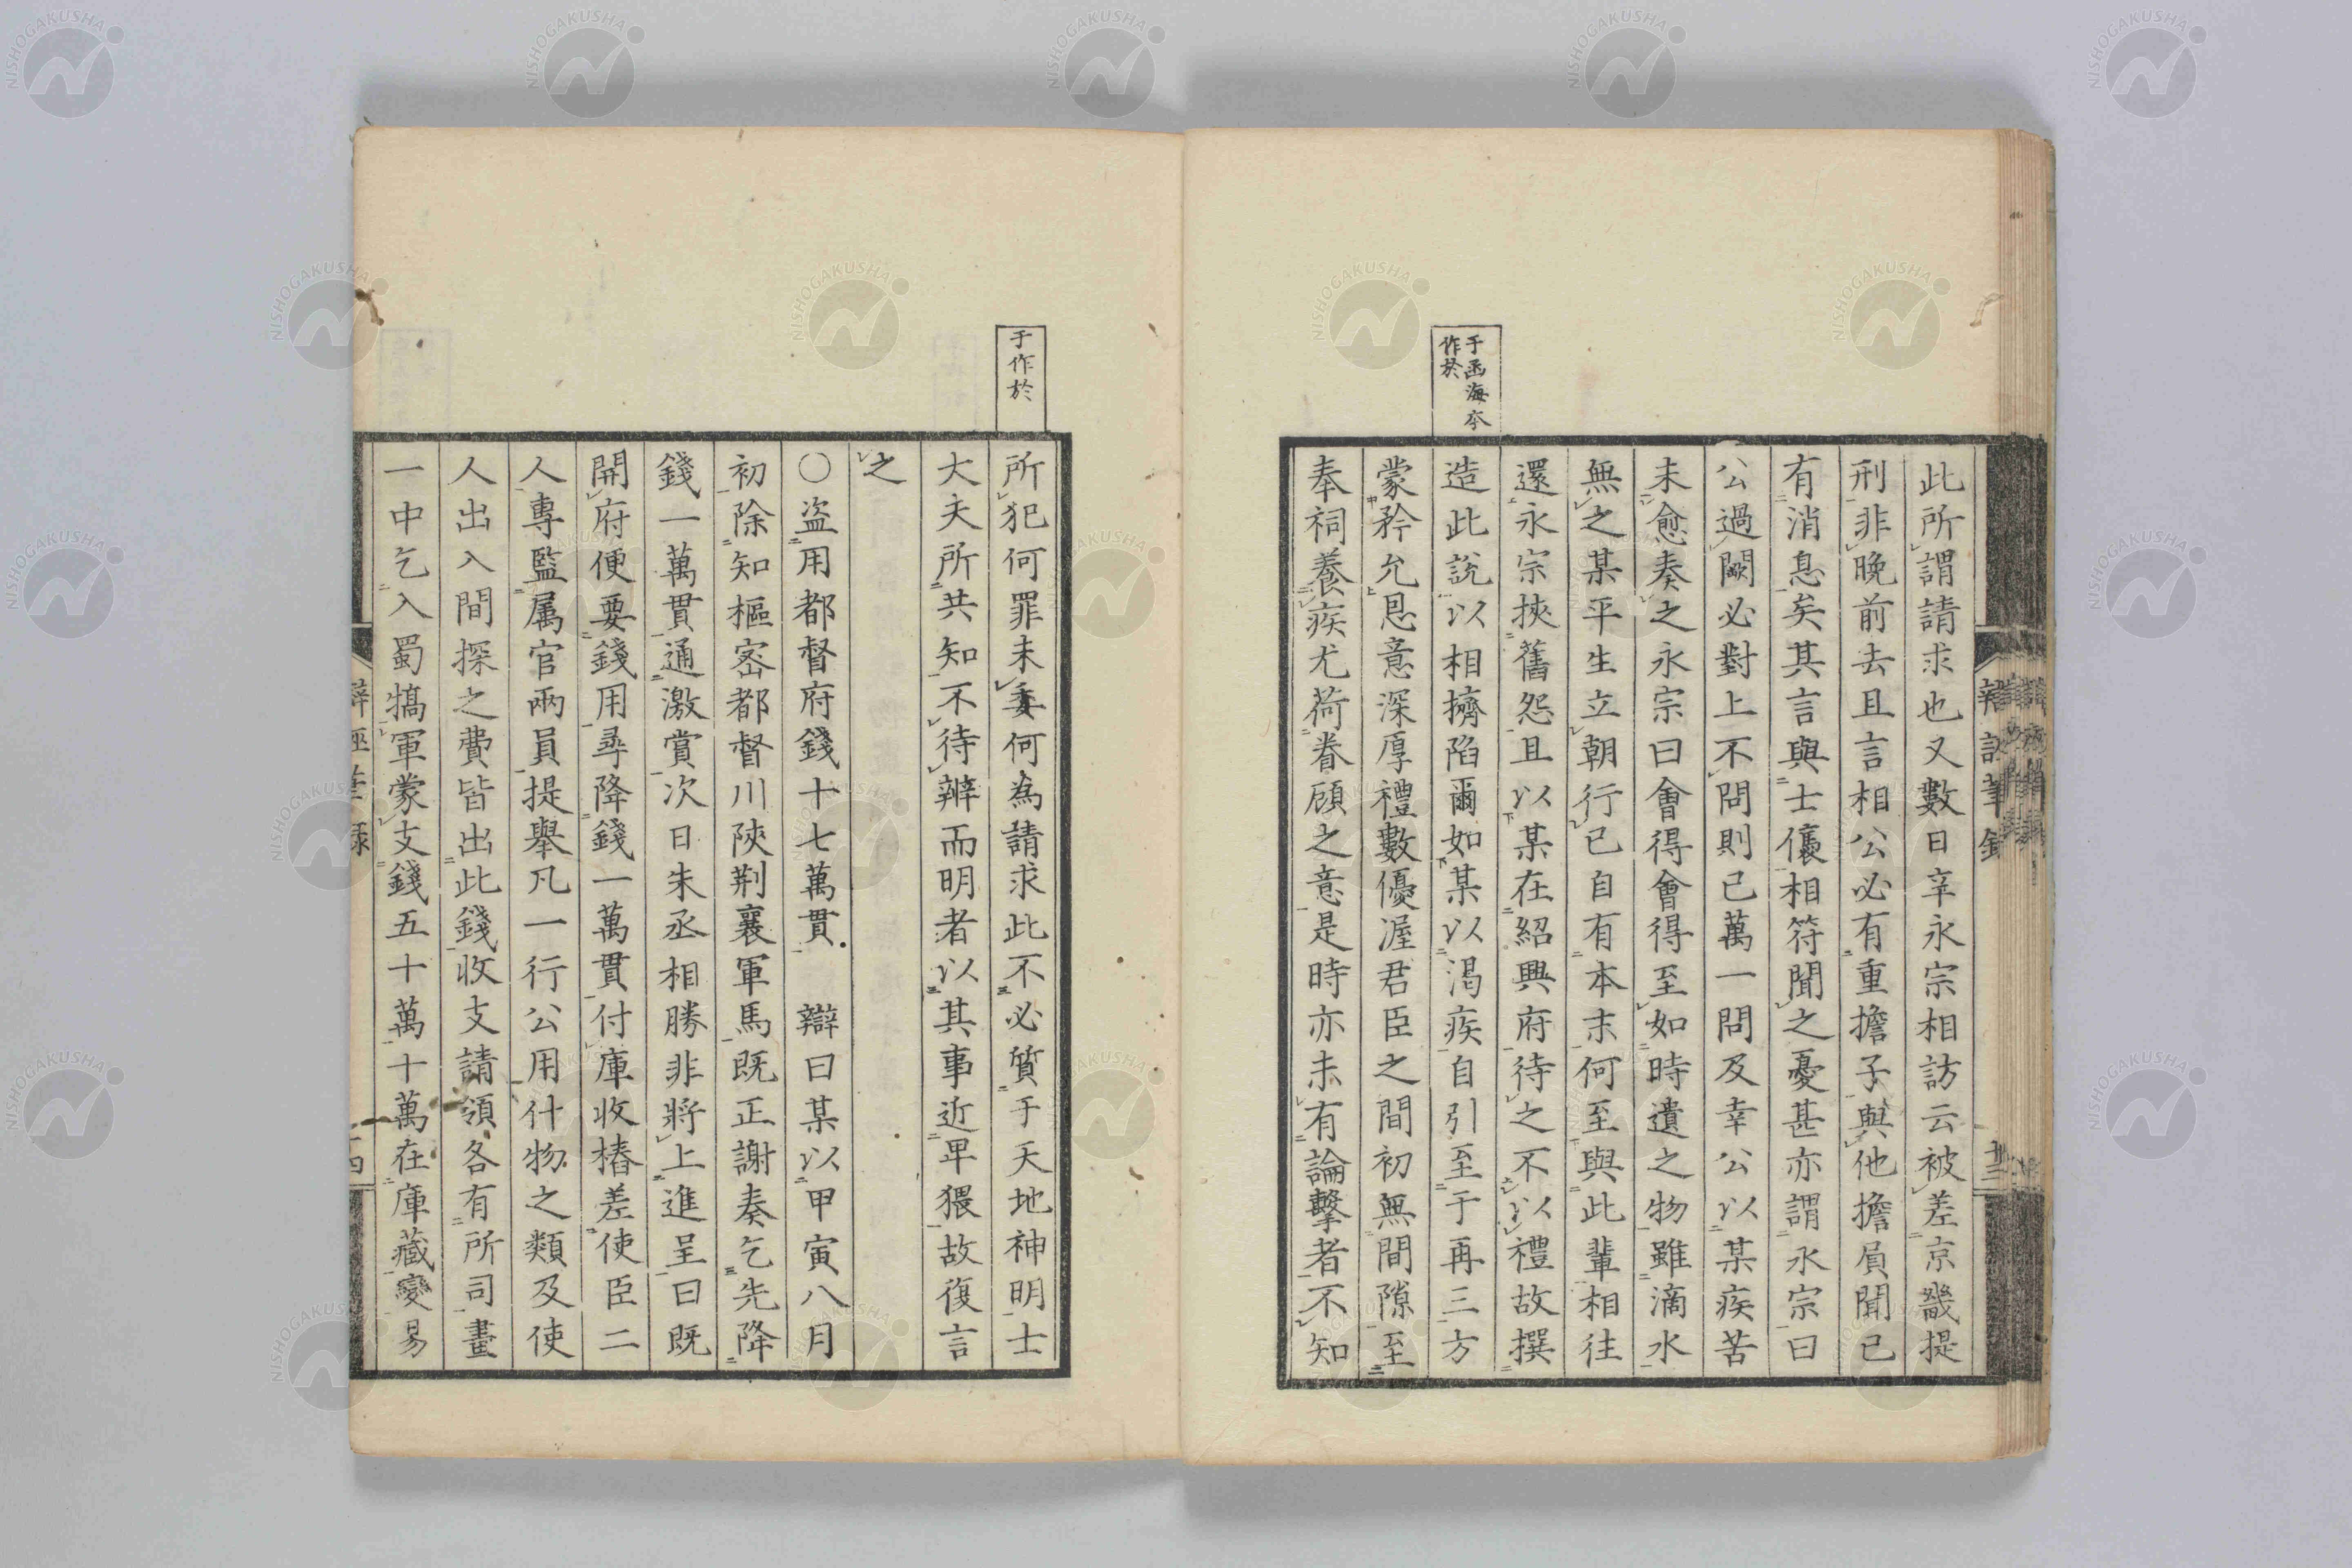 于函海本
作於
此所謂請求也又數日辛永宗相訪云被差京畿提
刑非晚前去且言相公必有重擔子與他擔負聞已
有消息矣其言與士㒟相符聞之憂甚亦謂永宗曰
公過闕必對上不問則已萬一問及幸公以某疾苦
未愈奏之永宗曰會得會得至如時遺之物雖滴水
無之某平生立朝行己自有本末何至與此輩相往
還永宗挾舊怨且以某在紹興府待之不以禮故撰
造此說以相擠陷爾如某以渴疾自引至于再三方
蒙矜允恩意深厚禮數優渥君臣之間初無間隙至
奉祠養疾尤荷眷顧之意是時亦未有論擊者不知
辯誣筆錄
十三
于作於
所犯何罪未委何為請求此不必質于天地神明士
大夫所共知不待辨而明者以其事近卑猥故復言
之
〇盜用都督府錢十七萬貫 辯曰某以甲寅八月
初除知樞密都督川陝荆襄軍馬既正謝奏乞先降
錢一萬貫通激賞次日朱丞相勝非將上進呈曰既
開府便要錢用尋降錢一萬貫付庫收樁差使臣二
人專監属官兩員提舉凡一行公用什物之類及使
人出入間探之費皆出此錢收支請領各有所司畫
一中乞入蜀犒軍蒙支錢五十萬十萬在庫藏變易
NISHOGAKUSHA